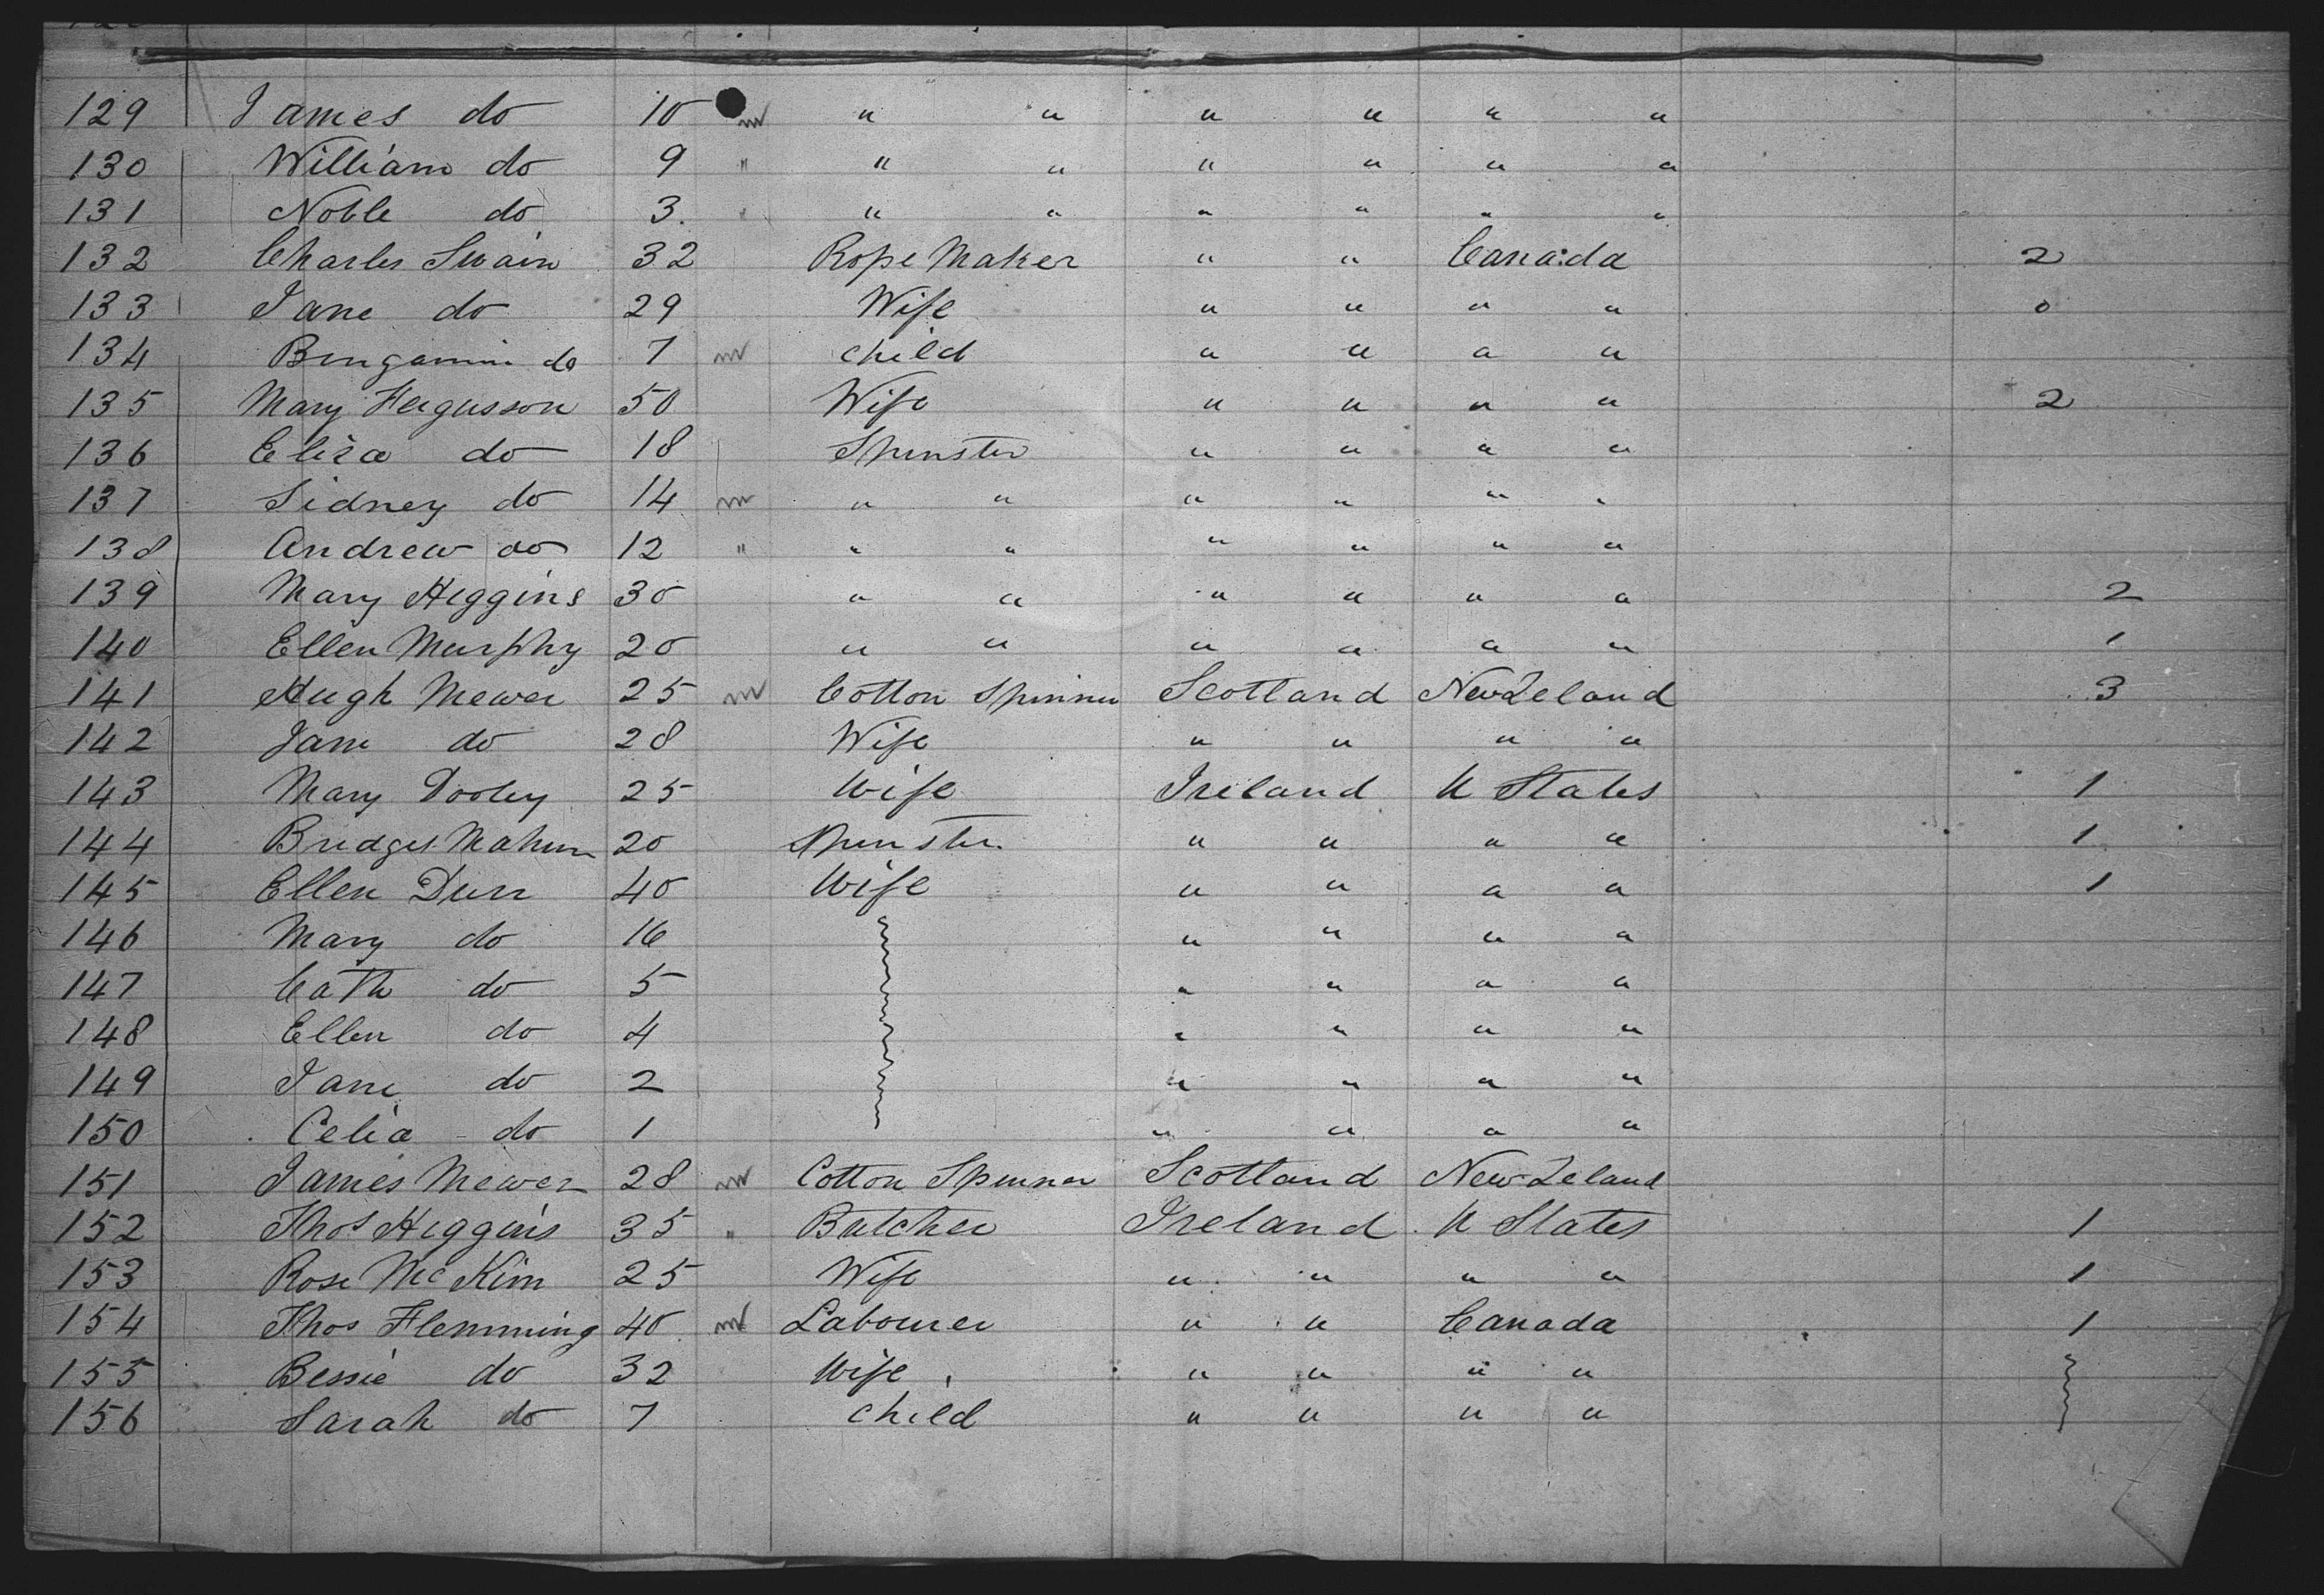 129 James do 10 m " " " " " "
130 William do 9 " " " " " " "
131 Noble do 3. " " " " " " "
132 Charles Swain 32 Rope Maker " " Canada 2
133 Jane do 29 Wife " " " " 0
134 Bengamin do 7 m child " " " "
135 Mary Fergusson 50 Wife " " " " 2
136 Eliza do 18 Spinster " " " "
137 Sidney do 14 m " " " " " "
138 Andrew do 12 " " " " " " "
139 Mary Higgins 30 " " " " " " 2
140 Ellen Murphy 20 " " " " " " 1
141 Hugh Mewer 25 m Cotton Spinner Scotland New Zeland 3
142 Jane do 28 Wife " " " "
143 Mary Dooley 25 Wife Ireland U States 1
144 Bridget 20 Spinster " " " " 1
145 Ellen Durr 40 Wife " " " " 1
146 Mary do 16 " " " "
147 Cath do 5 " " " "
148 Ellen do 4 " " " "
149 Jane do 2 " " " "
150 Celia do 1 " " " "
151 James Mewer 28 m Cotton Spinner Scotland New Zeland
152 Thos Higgins 35 " Butcher Ireland U States 1
153 Rose McKim 25 Wife " " " " 1
154 Thos Flemming 40 m Labourer " " Canada 1
155 Bessie do 32 Wife " " " "
156 Sarah do 7 child " " " "